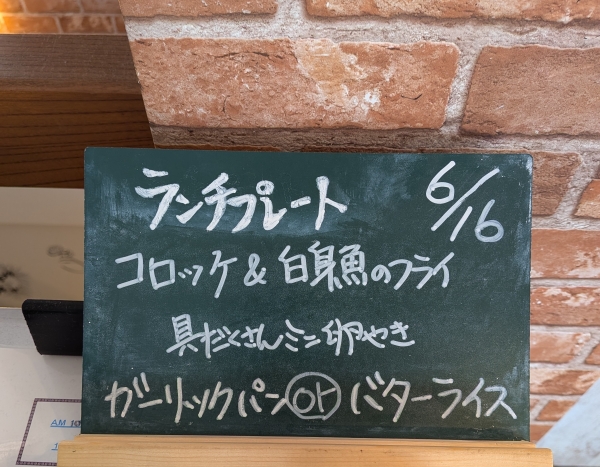 ランチプレート 6/16
コロッケ & 白身魚のフライ
具だくさんミニ卵やき
ガーリックパン or バターライス
AM